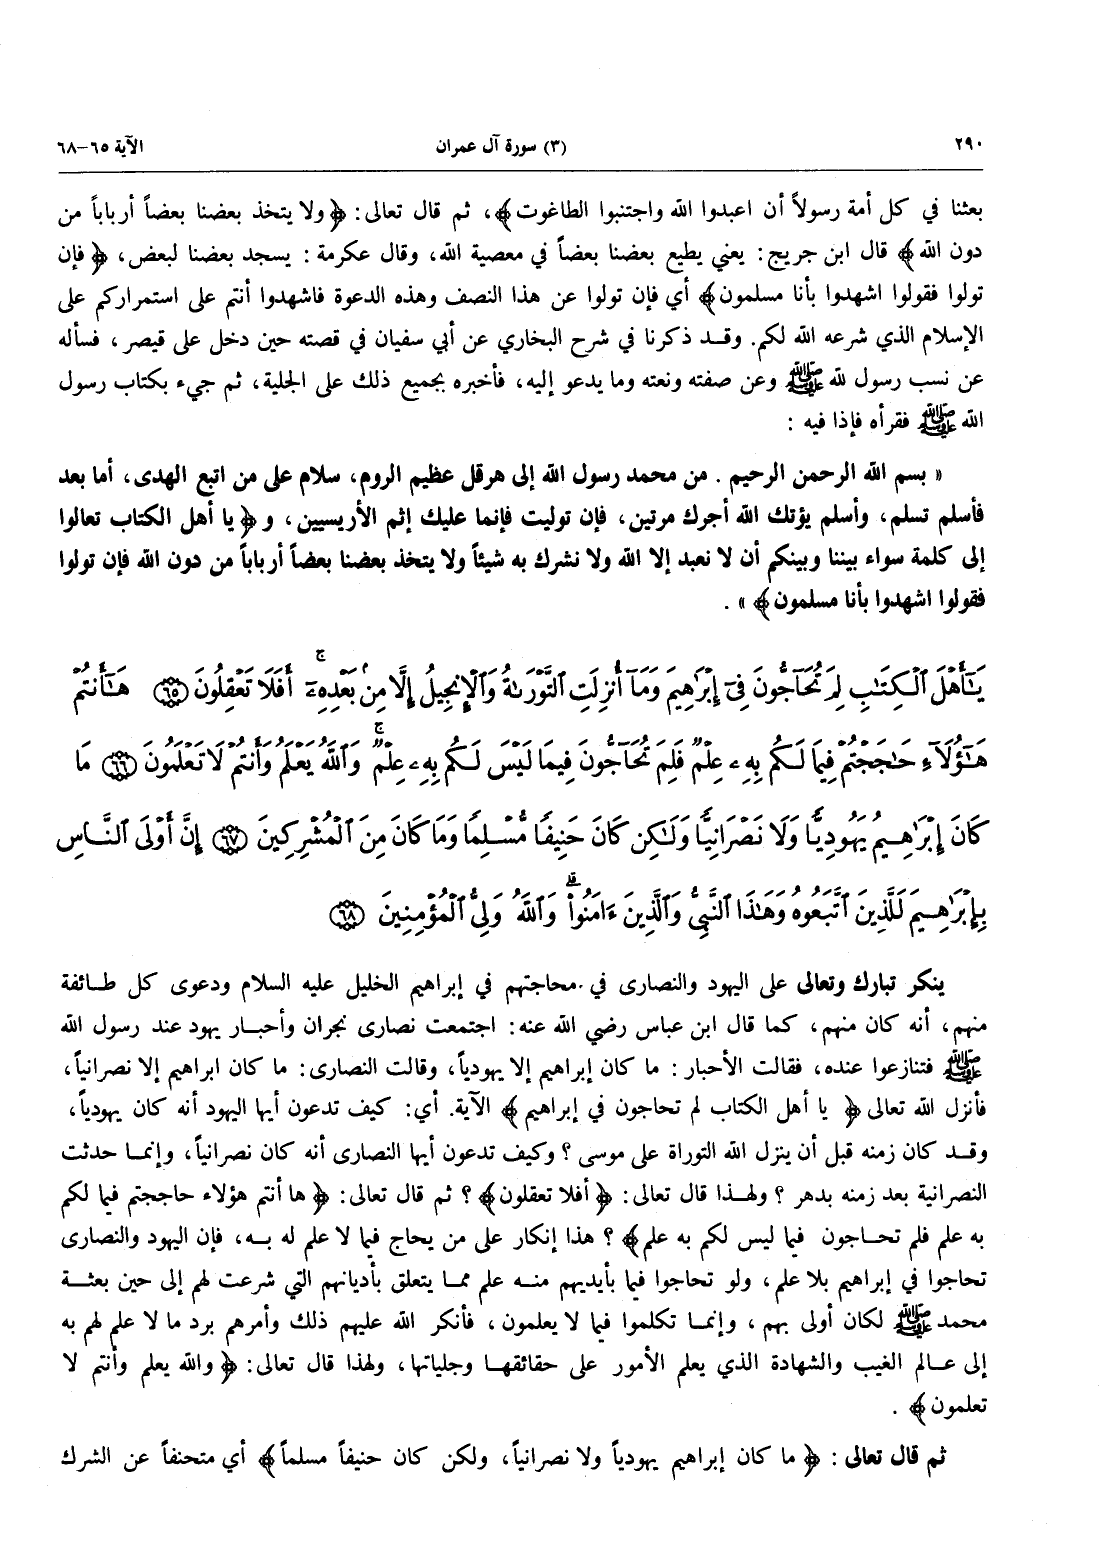 ٢٩٠ (٣) سورة آل عمران الآية ٦٥-٦٨
بعثنا في كل أمة رسولاً أن اعبدوا الله واجتنبوا الطاغوت﴾، ثم قال تعالى: ﴿ولا يتخذ بعضنا بعضاً أرباباً من
دون الله﴾ قال ابن جريج: يعني يطيع بعضنا بعضاً في معصية الله، وقال عكرمة: يسجد بعضنا لبعض، ﴿فإن
تولوا فقولوا اشهدوا بأنا مسلمون﴾ أي فإن تولوا عن هذا النصف وهذه الدعوة فاشهدوا أنتم على استمراركم على
الإسلام الذي شرعه الله لكم. وقد ذكرنا في شرح البخاري عن أبي سفيان في قصته حين دخل على قيصر، فسأله
عن نسب رسول لله ﷺ وعن صفته ونعته وما يدعو إليه، فأخبره بجميع ذلك على الجلية، ثم جيء بكتاب رسول
الله ﷺ فقرأه فإذا فيه :
« بسم الله الرحمن الرحيم . من محمد رسول الله إلى هرقل عظيم الروم، سلام على من اتبع الهدى، أما بعد
فأسلم تسلم، وأسلم يؤتك الله أجرك مرتين، فإن توليت فإنما عليك إثم الأريسيين، و﴿يا أهل الكتاب تعالوا
إلى كلمة سواء بيننا وبينكم أن لا نعبد إلا الله ولا نشرك به شيئاً ولا يتخذ بعضنا بعضاً أرباباً من دون الله فإن تولوا
فقولوا اشهدوا بأنا مسلمون﴾ » .
يَٰٓأَهْلَ ٱلْكِتَٰبِ لِمَ تُحَآجُّونَ فِىٓ إِبْرَٰهِيمَ وَمَآ أُنزِلَتِ ٱلتَّوْرَىٰةُ وَٱلْإِنجِيلُ إِلَّا مِنۢ بَعْدِهِۦٓ ۚ أَفَلَا تَعْقِلُونَ ۝٦٥ هَٰٓأَنتُمْ
هَٰٓؤُلَآءِ حَٰجَجْتُمْ فِيمَا لَكُم بِهِۦ عِلْمٌ فَلِمَ تُحَآجُّونَ فِيمَا لَيْسَ لَكُم بِهِۦ عِلْمٌ ۚ وَٱللَّهُ يَعْلَمُ وَأَنتُمْ لَا تَعْلَمُونَ ۝٦٦ مَا
كَانَ إِبْرَٰهِيمُ يَهُودِيًّا وَلَا نَصْرَانِيًّا وَلَٰكِن كَانَ حَنِيفًا مُّسْلِمًا وَمَا كَانَ مِنَ ٱلْمُشْرِكِينَ ۝٦٧ إِنَّ أَوْلَى ٱلنَّاسِ
بِإِبْرَٰهِيمَ لَلَّذِينَ ٱتَّبَعُوهُ وَهَٰذَا ٱلنَّبِىُّ وَٱلَّذِينَ ءَامَنُوا۟ ۗ وَٱللَّهُ وَلِىُّ ٱلْمُؤْمِنِينَ ۝٦٨
ينكر تبارك وتعالى على اليهود والنصارى في محاجتهم في إبراهيم الخليل عليه السلام ودعوى كل طائفة
منهم، أنه كان منهم، كما قال ابن عباس رضي الله عنه: اجتمعت نصارى نجران وأحبار يهود عند رسول الله
ﷺ فتنازعوا عنده، فقالت الأحبار: ما كان إبراهيم إلا يهودياً، وقالت النصارى: ما كان ابراهيم إلا نصرانياً،
فأنزل الله تعالى ﴿ يا أهل الكتاب لم تحاجون في إبراهيم ﴾ الآية. أي: كيف تدعون أيها اليهود أنه كان يهودياً،
وقد كان زمنه قبل أن ينزل الله التوراة على موسى ؟ وكيف تدعون أيها النصارى أنه كان نصرانياً، وإنما حدثت
النصرانية بعد زمنه بدهر ؟ ولهذا قال تعالى: ﴿أفلا تعقلون﴾ ؟ ثم قال تعالى: ﴿ها أنتم هؤلاء حاججتم فيما لكم
به علم فلم تحاجون فيما ليس لكم به علم﴾ ؟ هذا إنكار على من يحاج فيما لا علم له به، فإن اليهود والنصارى
تحاجوا في إبراهيم بلا علم، ولو تحاجوا فيما بأيديهم منه علم مما يتعلق بأديانهم التي شرعت لهم إلى حين بعثة
محمد ﷺ لكان أولى بهم، وإنما تكلموا فيما لا يعلمون، فأنكر الله عليهم ذلك وأمرهم برد ما لا علم لهم به
إلى عالم الغيب والشهادة الذي يعلم الأمور على حقائقها وجلياتها، ولهذا قال تعالى: ﴿والله يعلم وأنتم لا
تعلمون﴾ .
ثم قال تعالى : ﴿ ما كان إبراهيم يهودياً ولا نصرانياً، ولكن كان حنيفاً مسلماً﴾ أي متحنفاً عن الشرك